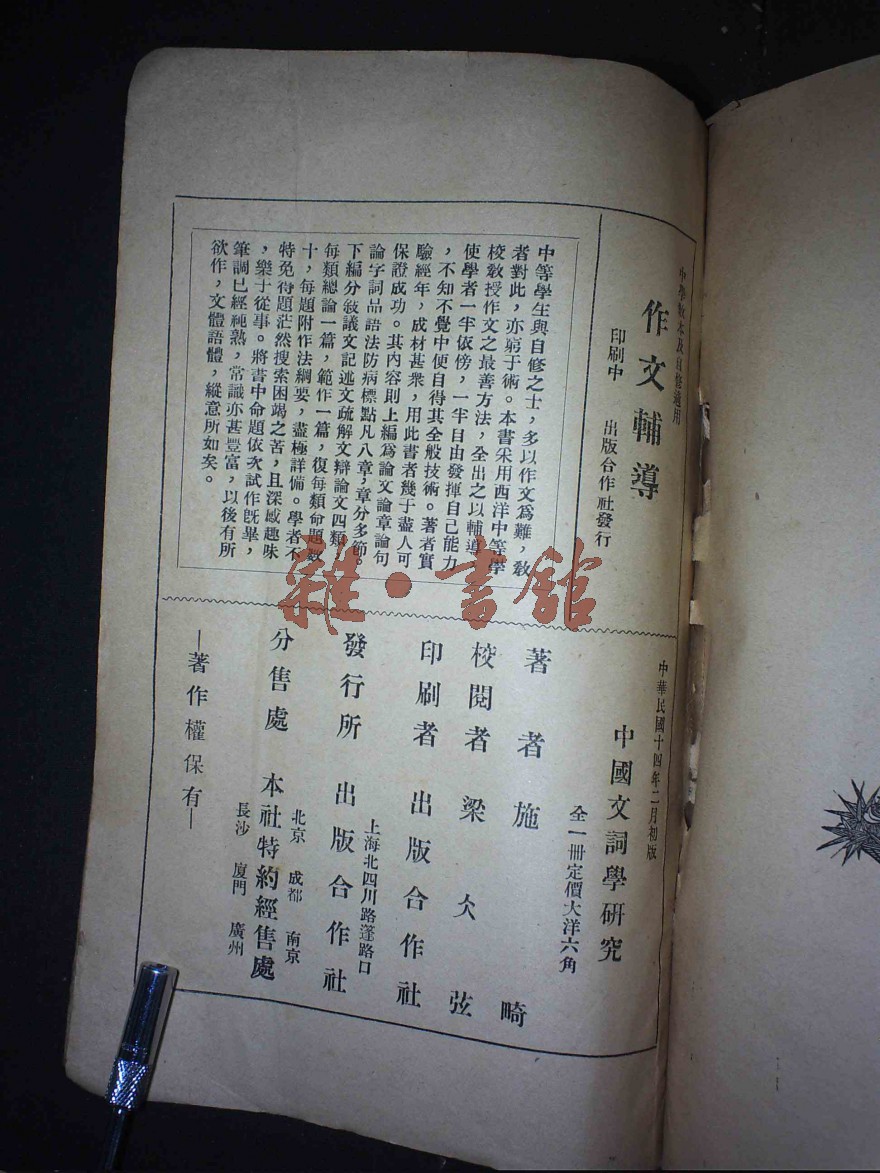 中學教本及自修適用
作文輔導
印刷中 出版合作社發行
中等學生與自修之士，多以作文爲難，教
者對此，亦窮于術。本書采用西洋中等學
校教授作文之最善方法，全出之以輔導，
使學者一半依傍，一半自由發揮自己能力
，不知不覺中便自得其全般技術。著者實
驗經年，成材甚衆，用此書者幾于盡人可
保證成功。其內容則上編爲論文論章論句
論字詞品語法防病標點凡八章，章分多節。
下編分敍議文記述文疏解文辯論文四類，
每類總論一篇，範作一篇，復每類命題數
十，每題附作法綱要，盡極詳備。學者不
特免得題茫然搜索困竭之苦，且深感趣味
，樂于從事。將書中命題依次試作旣畢，
筆調已經純熟，常識亦甚豐富，以後有所
欲作，文體語體，縱意所如矣。
中華民國十四年二月初版
中國文詞學研究
全一册定價大洋六角
著者 施畸
校閱者 梁仌弦
印刷者 出版合作社
上海北四川路蓬路口
發行所 出版合作社
北京 成都 南京
分售處 本社特約經售處
長沙 廈門 廣州
—著作權保有—
雜·書館